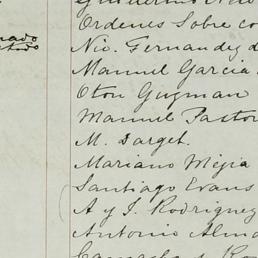 Guillermo
Ordenes Sobre co
Nic. Fernandez d
Manuel Garcia
Oton Guzman
Manuel Pastor
M. Darget.
Mariano Mejia
Santiago Evans
A y J. Rodriguez
Antonio Alma